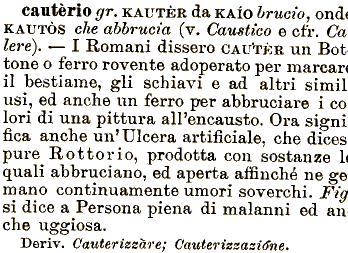 cautèrio gr. KAUTÈR da KAÍO brucio, onde
KAUTÒS che abbrucia (v. Caustico e cfr. Ca
lere). — I Romani dissero CAUTÈR un Bot
tone o ferro rovente adoperato per marcare
il bestiame, gli schiavi e ad altri simil
usi, ed anche un ferro per abbruciare i co
lori di una pittura all'encausto. Ora signi
fica anche un' Ulcera artificiale, che dices
pure Rottorio, prodotta con sostanze le
quali abbruciano, ed aperta affinché ne ge
mano continuamente umori soverchi. Fig
si dice a Persona piena di malanni ed an
che uggiosa.
Deriv. Cauterizzàre; Cauterizzazióne.